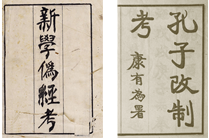 新學偽經考
孔子改制
考
康有為署